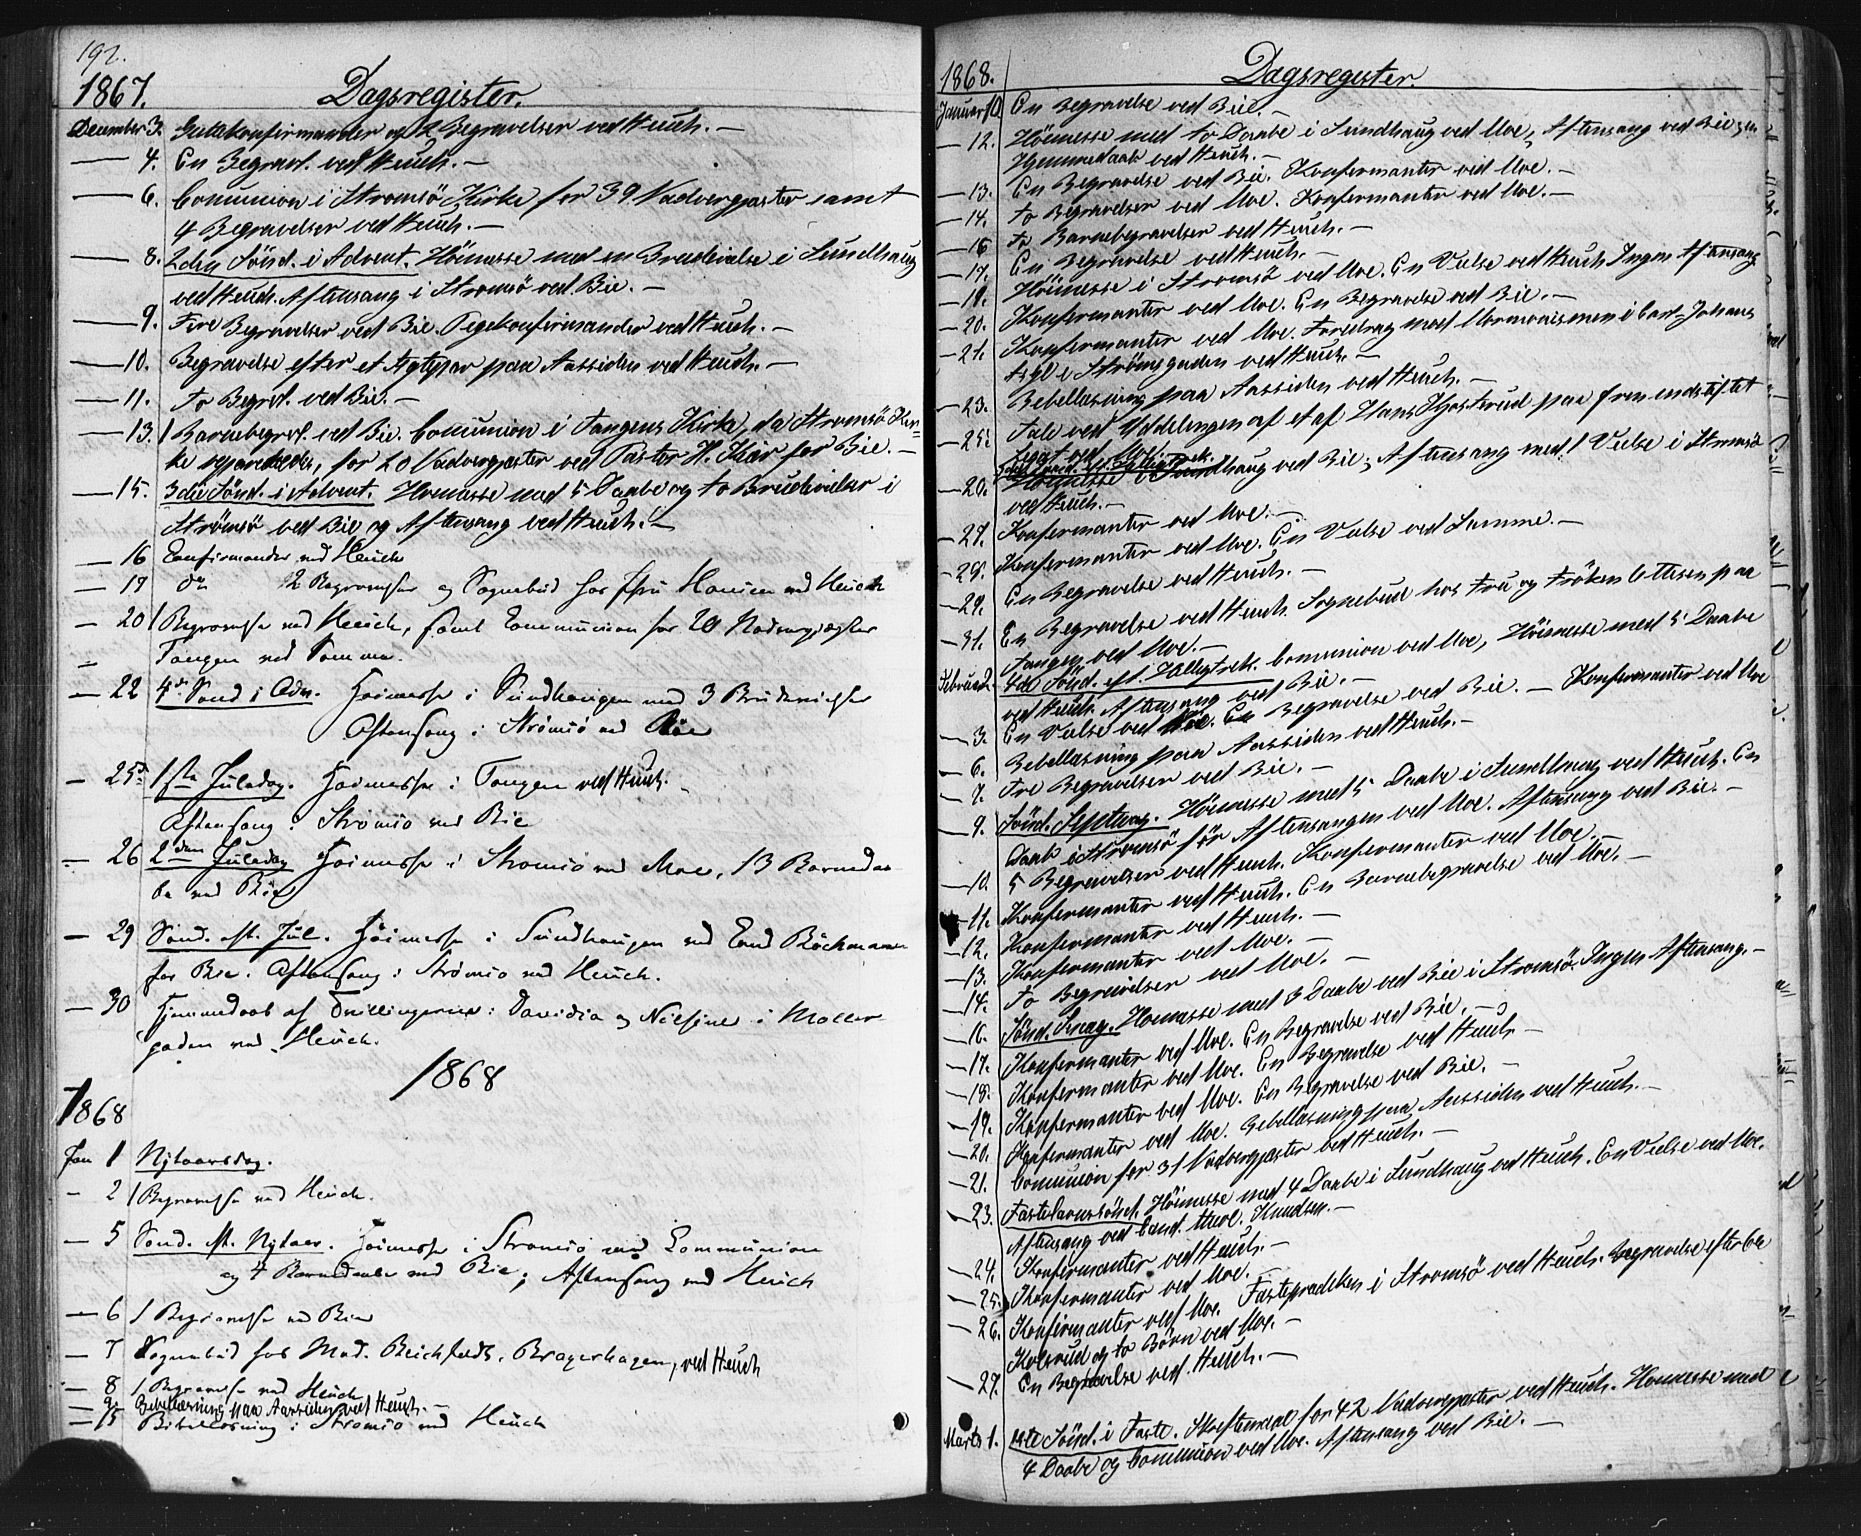 192.
1867. Dagsregister.
December 3. Guttekonfirmander og 2 Begravelser ved Heuch. —
— 4. En Begravl. ved Heuch. —
— 6. Comunion i Strømsö Kirke for 39 Nadvergjæster samt
4 Begravelser ved Heuch. —
— 8. 2den Sönd. i Advent. Höimesse med en Brudevielse i Sundhaug
ved Heuch. Aftensang i Strømsö ved Bie. —
— 9. Fire Begravelser ved Bie. Pigekonfirmander ved Heuch. —
— 10. Begravelse efter et Ægtepar paa Aassiden ved Heuch. —
— 11. To Begrvl. ved Bie. —
— 13. 1 Barnebegrvl. ved Bie. Comunion i Tangens Kirke, da Strømsö Kir-
ke repareredes, for 20 Nadvergjæster ved Pastor H. Kiær for Bie. —
— 15. 3die Sönd. i Advent. Höimesse med 5 Daabe og to Brudevielser i
Strømsö ved Bie og Aftensang ved Heuch. —
— 16 Confirmander ved Heuch
— 17 do 2 Begravelser og Sognebud hos Fru Hansen ved Heuch
— 20 1 Begravelse ved Heuch, samt Communion for 20 Nadvergjæster
Tangen ved Somme.
— 22 4de Sönd i Adv. Höimesse i Sundhaugen med 3 Brudevielser
Aftensang i Strømsö ved Bie
— 25. 1ste Juledag. Höimesse i Tangen ved Heuch. —
Aftensang i Strømsö ved Bie
— 26 2den Juledag Höimesse i Strømsö ved Moe, 13 Barnedaa-
be ved Bie
— 29 Sönd. eft. Jul. Höimesse i Sundhaugen ved Cand Böckmann
for Bie. Aftensang i Strømsö ved Heuch.
— 30 Hjemmedaab af Tvillingerne: Davidia og Nilsine i Møller-
gaden ved Heuch.
1868
1868
Jan 1 Nytaarsdag.
— 2 1 Begravelse ved Heuch.
— 5 Sönd. eft. Nytaar. Höimesse i Strømsö med Communion
og 4 Barnedaabe ved Bie; Aftensang ved Heuch
— 6 1 Begravelse ved Bie
— 7 Sognebud hos Mad. Beichfeldt, Bragerhagen, ved Heuch
— 8 1 Begravelse ved Heuch
— 9. Bibellæsning paa Aassiden ved Heuch. —
— 15 Bibellæsning i Strømsö ved Heuch
1868. Dagsregister.
Januar 10. En Begravelse ved Bie. —
— 12. Höimesse med to Daabe i Sundhaug ved Moe, Aftensang ved Bie, en
Hjemmedaab ved Heuch. —
— 13. En Begravelse ved Bie. Konfermanter ved Moe. —
— 14. To Begravelser ved Moe. Konfermanter ved Moe. —
— 16 To Barnebegravelser ved Heuch. —
— 17. En Begravelse ved Heuch. —
— 19. Höimesse i Strømsö ved Moe. En Vielse ved Heuch. Ingen Aftensang
— 20. Konfermanter ved Moe. En Begravelse ved Bie. —
— 21. Konfermanter ved Moe. Foredrag mod Mormonismen i Carl-Johans
ved Heuch. —
— 23. Bibellæsning paa Aassiden ved Heuch. —
— 25. Tale ved Uddelingen af et af Hans Kjøsterud paa fremendstiftet
Legat ved Moe.
— 26. Höimesse i Sundhaug ved Bie; Aftensang med 1 Vielse i Strømsö
ved Heuch. —
— 27. Konfermanter ved Moe. —
— 28. Konfermanter ved Moe. En Vielse ved Somme. —
— 29. En Begravelse ved Heuch. —
— 31. En Begravelse ved Heuch. Sognebud hos Fru og Fröken Ottesen paa
Tangen ved Moe. —
Februar 2. 4de Sönd. eft. Helligtrek. Comunion ved Moe, Höimesse med 5 Daabe
ved Heuch. Aftensang ved Bie. —
— 3. En Vielse ved Bie. En Begravelse ved Bie. — Konfermanter ved Moe
— 6. Bibellæsning paa Aassiden ved Heuch. —
— 7. Tre Begravelser ved Bie. —
— 9. Sönd. Septuag. Höimesse med 5 Daabe i Sundhaug ved Heuch. En
Daab i Strømsö för Aftensangen ved Moe. Aftensang ved Bie. —
— 10. 5 Begravelser ved Heuch. Konfermanter ved Moe. —
— 11. Konfermanter ved Heuch. En Barnebegravelse ved Moe. —
— 12. Konfermanter ved Heuch. —
— 13. Konfermanter ved Moe. —
— 14. To Begravelser ved Moe. —
— 16. Sönd. Sexag. Höimesse med 3 Daabe ved Bie i Strømsö. Ingen Aftensang. —
— 17. Konfermanter ved Moe. En Begravelse ved Bie. —
— 18. Konfermanter ved Moe. En Begravelse ved Heuch —
— 19. Konfermanter ved Moe. En Begravelse ved Bie. —
— 20. Konfermanter ved Moe. Bibellæsning paa Aassiden ved Heuch. —
— 21. Comunion for 31 Nadvergjæster ved Heuch. —
— 23. Fastelavnssönd. Höimesse med 4 Daabe i Sundhaug ved Heuch. En Vielse ved Moe.
Aftensang ved Cand. theol. Knudsen. —
— 24. Konfermanter ved Heuch. —
— 25. Konfermanter ved Moe. —
— 26. Konfirmanter ved Moe. Fasteprædiken i Strømsö ved Heuch. Begravelse efter
Kolsrud og to Börn ved Moe. —
— 27. En Begravelse ved Heuch. —
Marts 1. 1ste Sönd. i Faste. Skriftemaal for 42 Nadvergjæster ved Heuch. Höimesse med
4 Daabe og Comunion ved Moe. Aftensang ved Bie. —